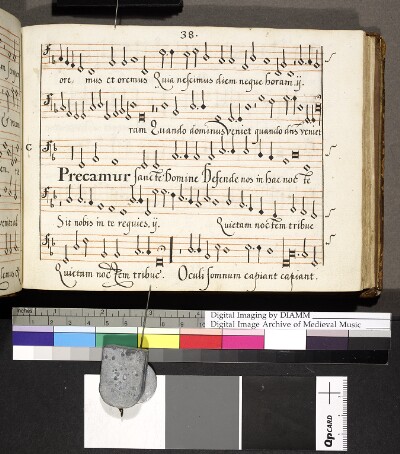 38.
ore mus et oremus Qua nescimus diem neque horam, ij.
ram Quando dominus veniet quando dns veniet
C
Precamur sancte Domine Defende nos in hac noc te
Sit nobis in te requies, ij. Quietam noctem tribue
Quietam noctem tribue. Oculi somnum capiant capiant.
inches 1 2
Digital Imaging by DIAMM
Digital Image Archive of Medieval Music
QPCARD